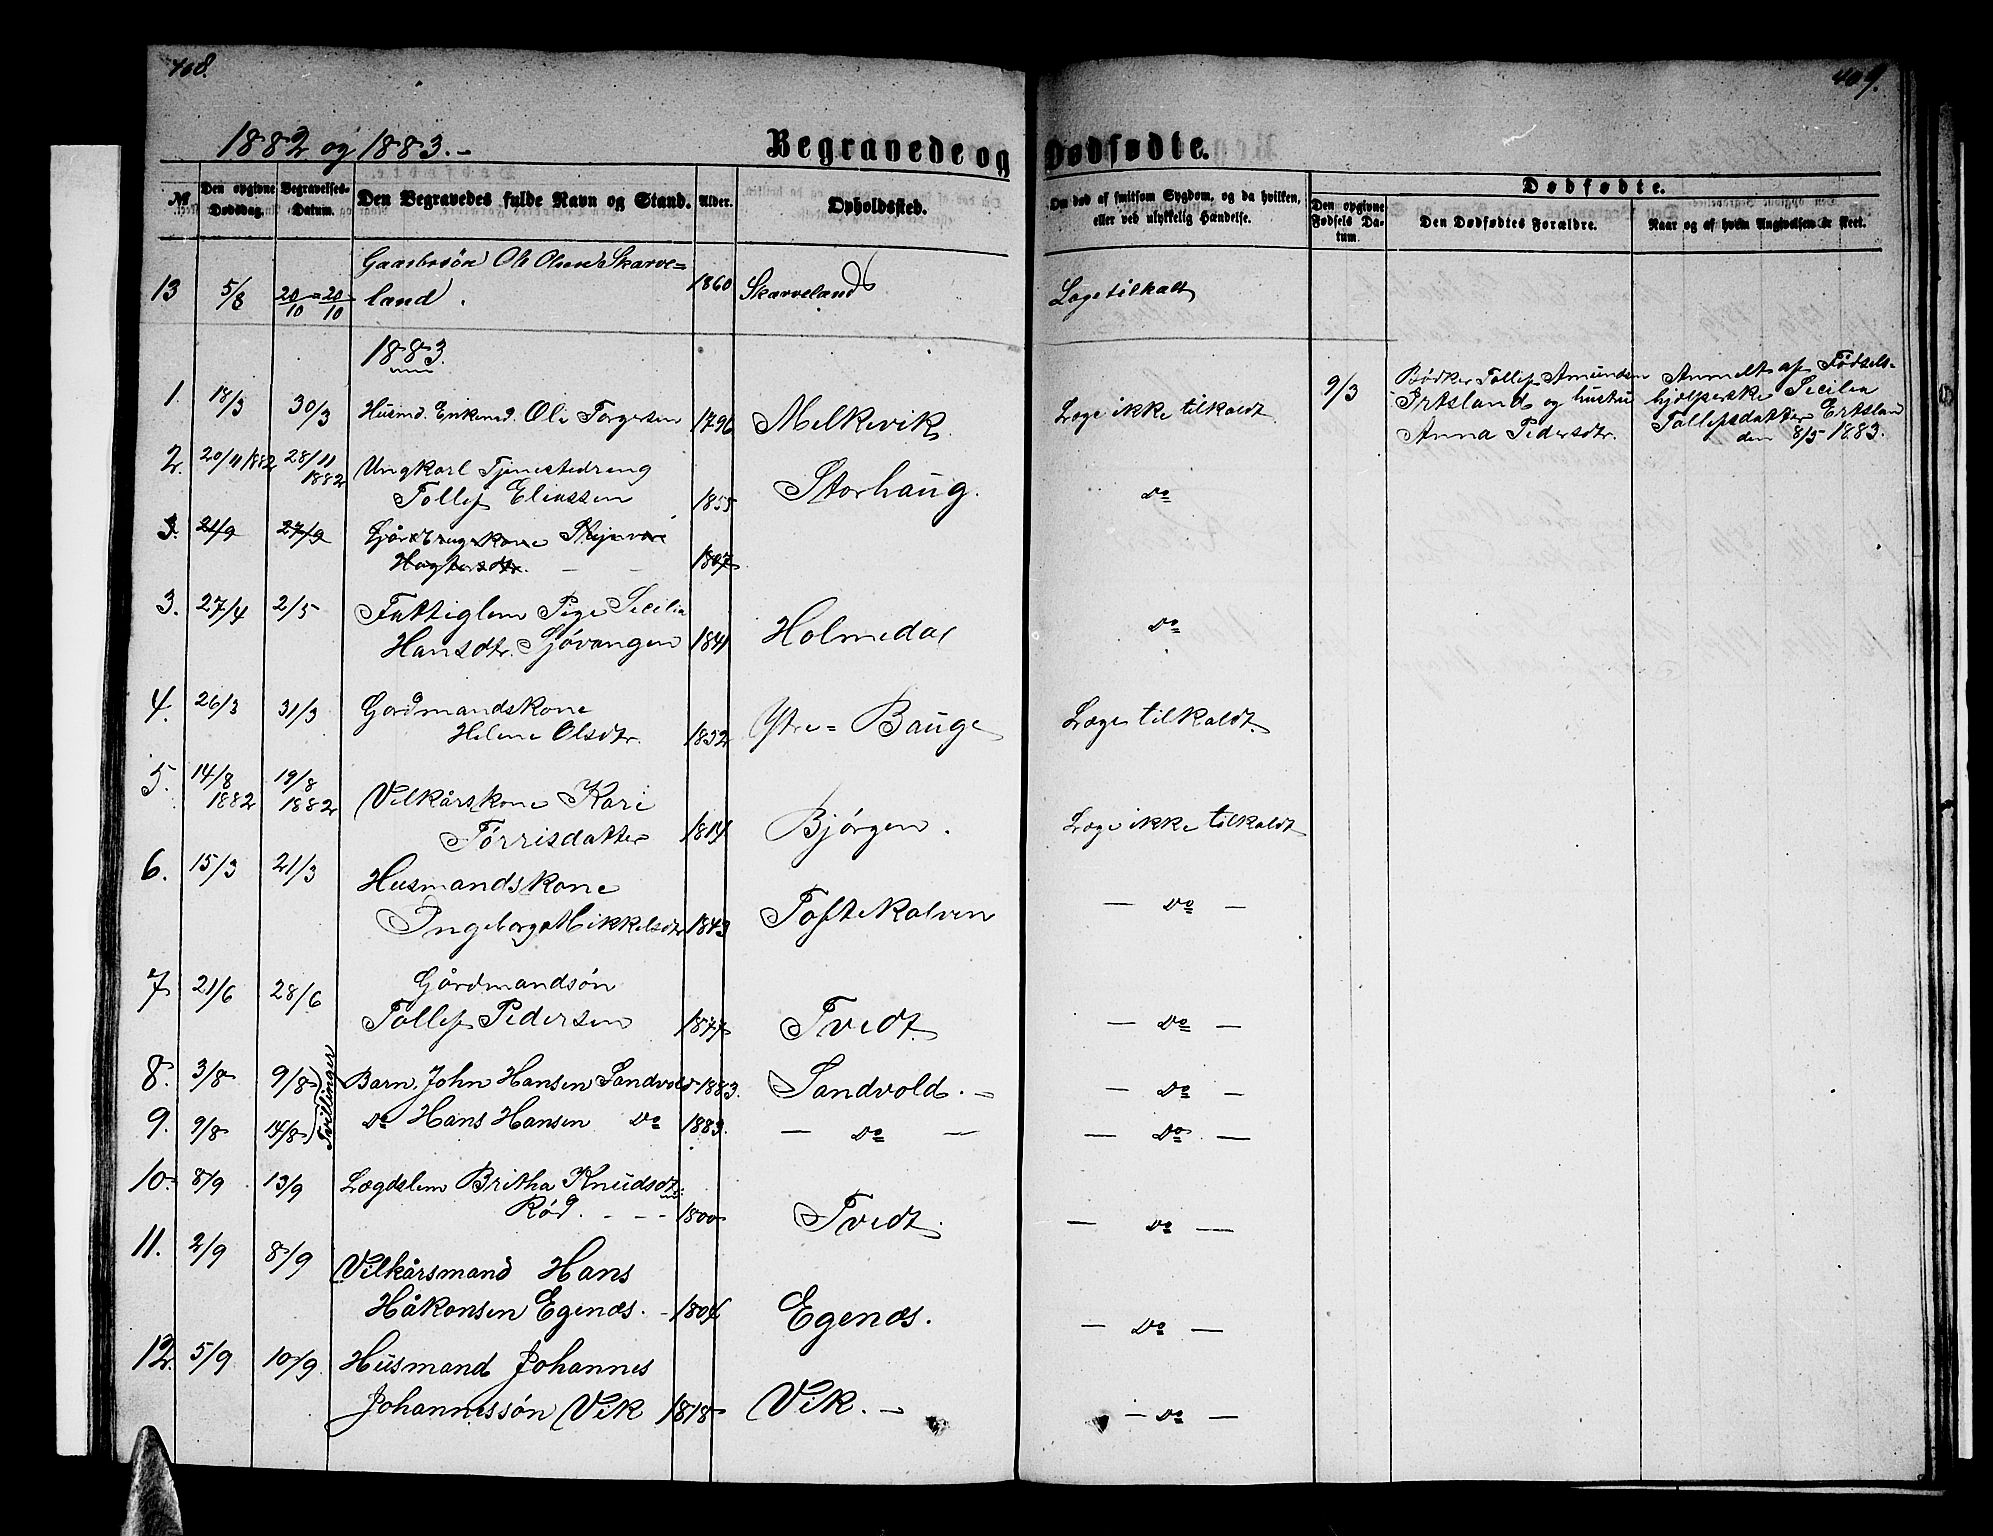 408.
409.
1882 og 1883.-
Begravede og Dødfødte.
№
Den opgivne Dødsdag.
Begravelses-Datum.
Den Begravedes fulde Navn og Stand.
Alder.
Opholdsted.
Om død af smitsom Sygdom, og da hvilken, eller ved ulykkelig Hændelse.
Dødfødte.
Den opgivne Fødsels Datum.
Den Dødfødtes Forældre.
Naar og af hvem Angivelsen er skeet.
13 5/8 20/10 = 20/10 Ole Olsen Skarve=
land. 1860 Skarveland Læge tilkaldt
1883.
1. 18/3 30/3 Husmd. Enkemd. Ole Torgersen 1796 Melkevik. Læge ikke tilkaldt.
9/3 Bødker Tollef Amundsen
og hustru
Anna Pedersdtr.
Anmeldt af Fødsels-
hjælperske Secilia
Tollefsdatter
den 8/5 1883.
2. 20/11 1882 28/11 1882 Ungkarl Tjenestedreng
Tollef Eliassen 1855 Storhaug. do
3. 21/9 27/9
1807
3. 27/4 2/5 Fattiglem Pige Secilia
Hansdtr. Sjøvangen 1841 Holmedal do
4. 26/3 31/3 Gårdmandskone
Helene Olsdtr. 1852 Ytre= Bauge Læge tilkaldt.
5. 14/8 1882 19/8 1882 Vilkårskone Kari
Tørrisdatter 1814 Bjørgen. Læge ikke tilkaldt
6. 15/3 21/3 Husmandskone
Ingeborg Mikkelsdtr 1843 Toftekalven — do —
7 21/6 28/6 Gårdmandsøn
Tollef Pedersen 1877 Tvedt. — do —
8. 3/8 9/8 Barn John Hansen Sandvold 1883. Sandvold. — — do —
Tvillinger
9. 9/8 14/8 do Hans Hansen do 1883. — do — — do. —
10. 8/9 13/9 Lægdslem Britha Knudsdtr.
Rød. - - - 1800 Tvedt. — do —
11. 2/9 8/9 Vilkårsmand Hans
Håkonsen Egenæs. - 1804 Egenæs. — do —
12. 5/9 10/9 Husmand Johannes
Johannessøn Vik 1818 Vik. — — do —